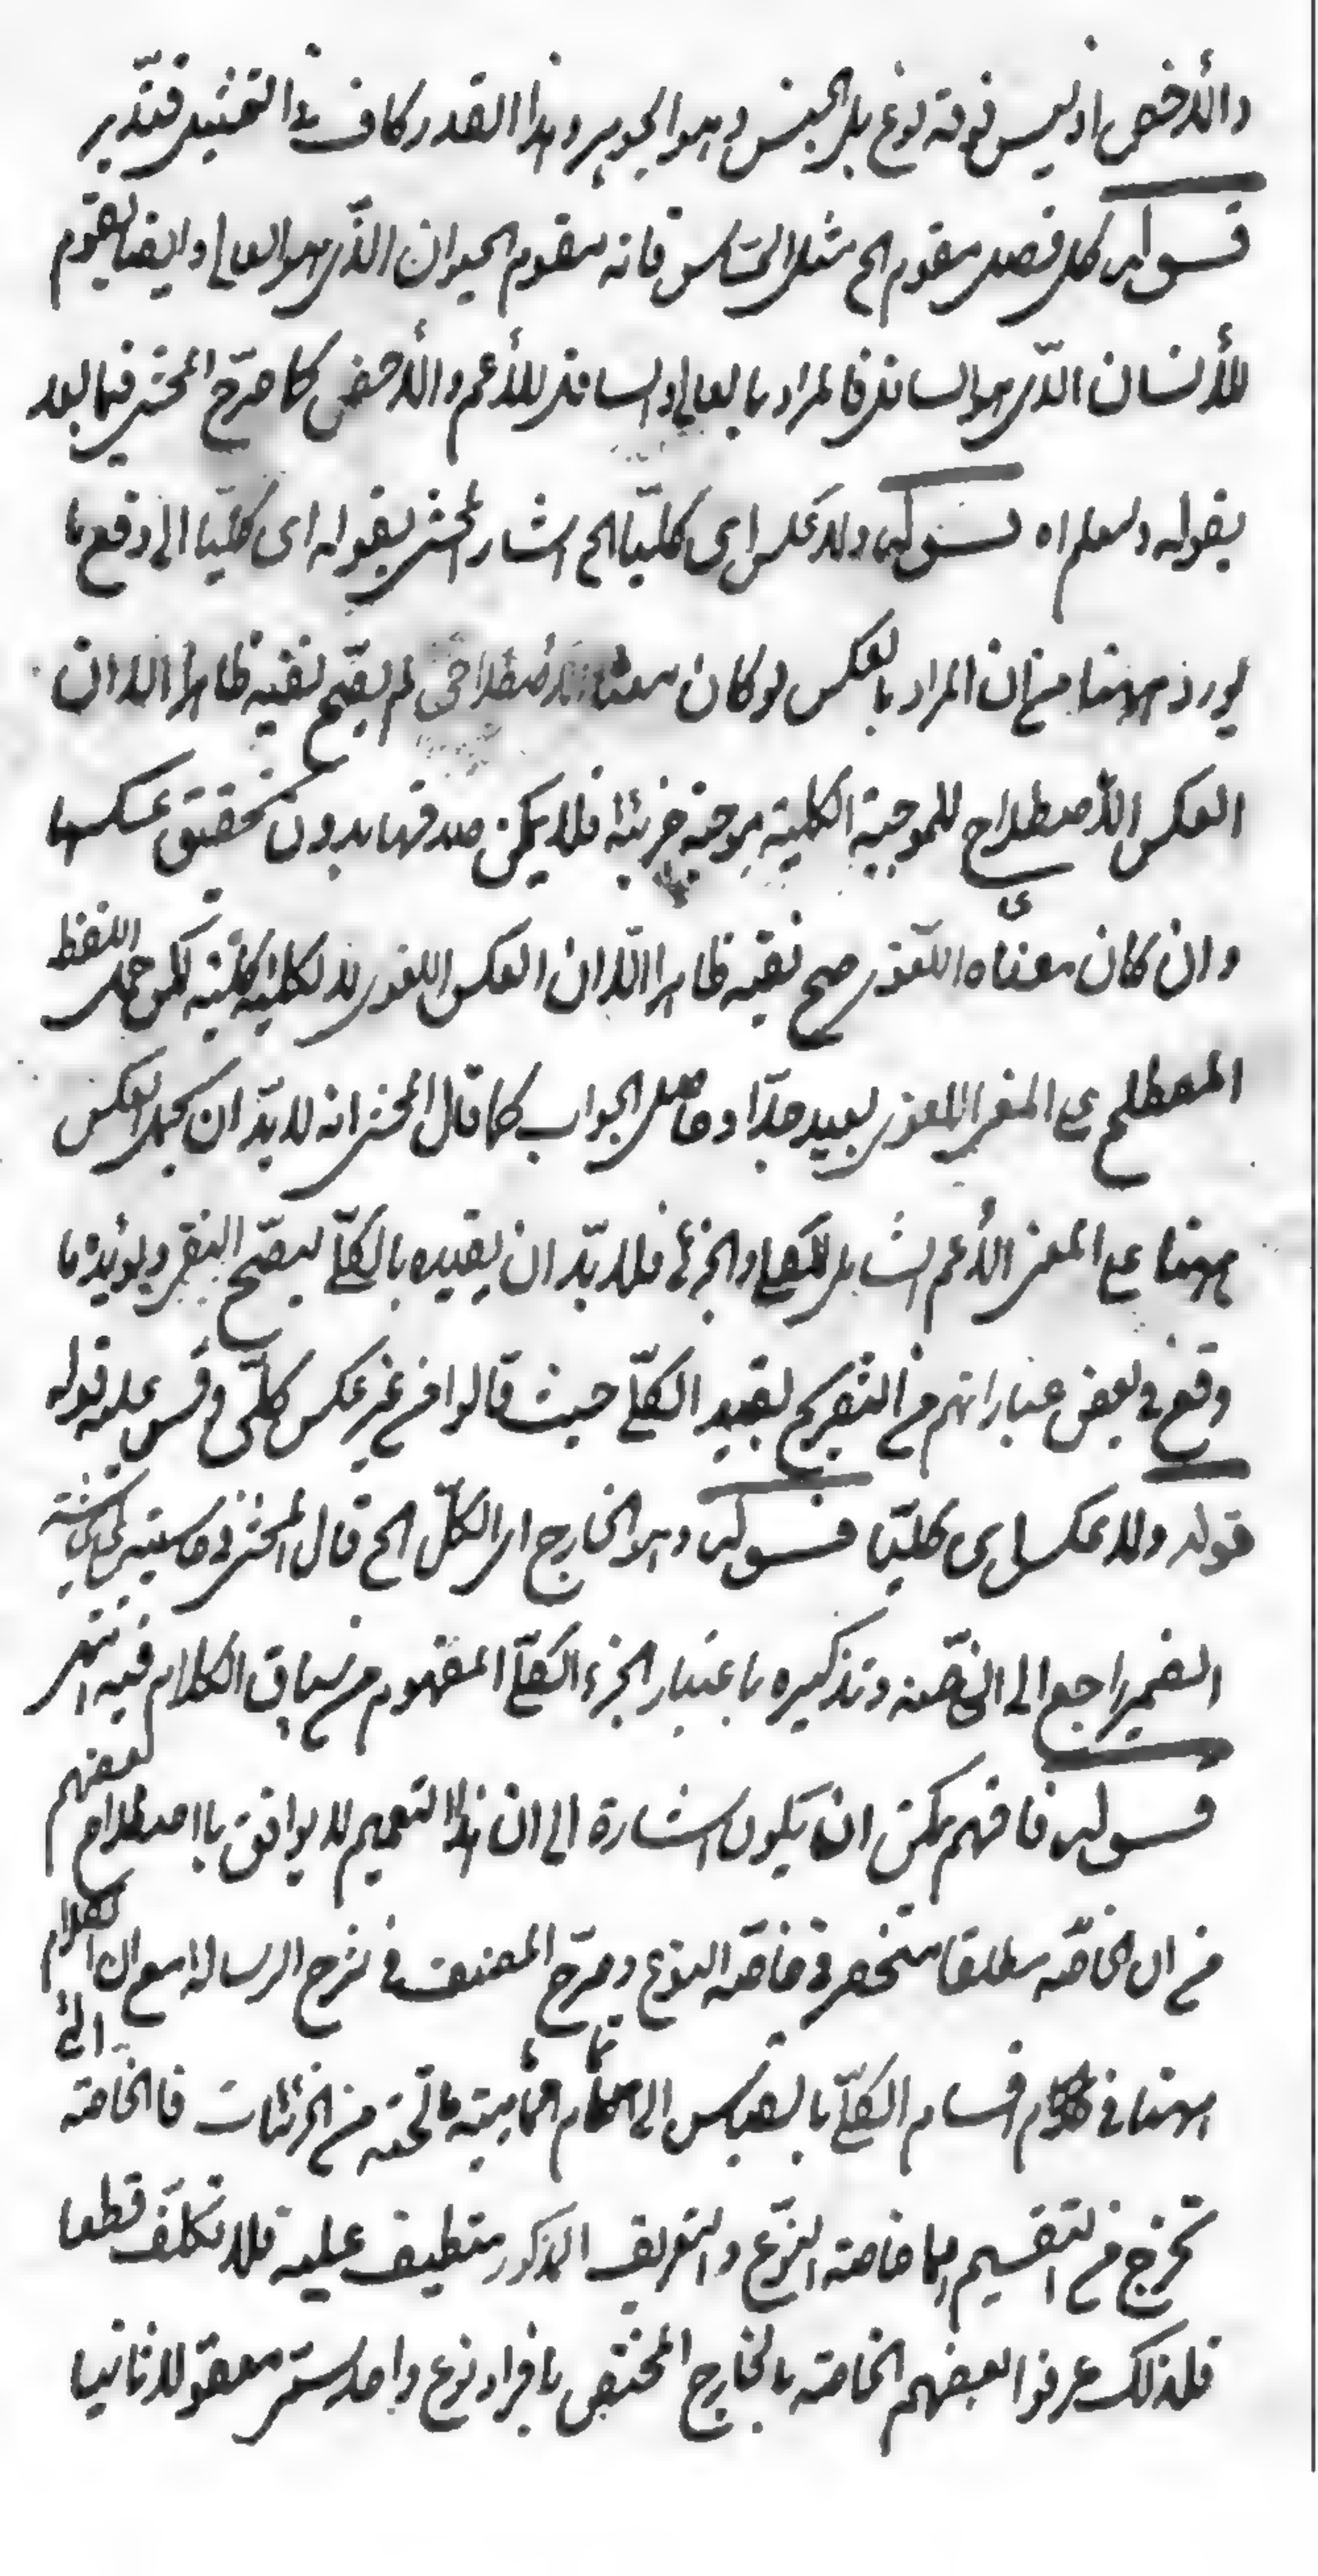 والأخص اذ ليس فوقه نوع بل الجنس وهو الجوهر وهذا القدر كاف في التمثيل فتدبر
قوله كل فصل مقوم الخ مثل الحساس فانه مقوم الحيوان الذي هو العالي وايضا يقوم
للأنسان الذي هو السافل فالمراد بالعالي والسافل للأعم والأخص كما صرّح المحشى فيما بعد
بقوله وليعلم اه قوله ولا عكس اى كليّا الخ اشار المحشى بقوله اى كليّا الى دفع ما
يورد ههنا من ان المراد بالعكس لو كان معناه الأصطلاحى لم يصحّ نفيه ظاهرا لان
العكس الأصطلاحى للموجبة الكلية موجبة جزئية فلا يمكن صدقها بدون تحقيق عكسها
وان كان معناه اللّغوى صح نفيه ظاهرا لان العكس اللغوى للكلية كلّية لكن حمل اللفظ
المصطلح على المعنى اللغوى بعيد جدّا وحاصل الجواب كما قال المحشى انه لا بدّ ان يحمل العكس
ههنا على المعنى الأعم الشامل للكلى والجزئى فلا بدّ ان يقيده بالكلّى ليصحّ النفى ويؤيده ما
وقع فى بعض عباراتهم من التصريح بقيد الكلّى حيث قالوا من غير عكس كلّى وقس عليه قوله
قوله ولا عكس اى كليّا قوله وهو الخارج اى الكلّى الخ قال المحشى فى حاشيته الحاشية
الضمير راجع الى الخاصّة وتذكيره باعتبار الجزء الكلّى المفهوم من سياق الكلام فيه انتهى
قوله فافهم يمكن ان يكون اشارة الى ان هذا التعميم لا يوافق باصطلاح بعضهم
من ان الخاصّة مطلقا منحصر فى خاصّة النوع وصرّح المصنف فى شرح الرسالة مع ان الكلام
ههنا فى اقسام الكلّى بالقياس الى تمام ماهية ما تحته من الجزئيات فالخاصة التى
تخرج من التقسيم انما خاصة النوع والتعريف المذكور منطبق عليه فلا تكلّف قطعا
فلذلك عرفوا بعضهم الخاصة بالخارج المختص بافراد نوع واحد ستمر معقولا ثانيا